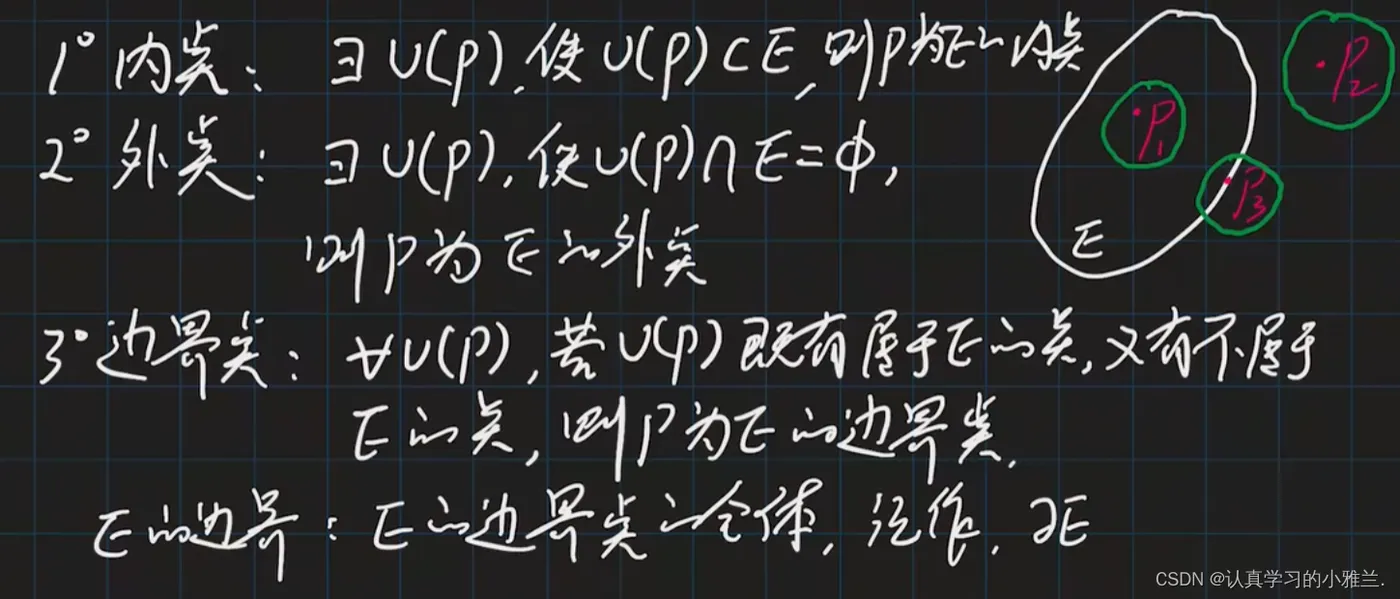 1° 内点: ∃ U(P), 使 U(P)⊂E, 则P为E的内点
2° 外点: ∃ U(P), 使 U(P)∩E=ϕ,
则P为E的外点
3° 边界点: ∀U(P), 若U(P)既有属于E的点, 又有不属于
E的点, 则P为E的边界点.
E的边界: E的边界点的全体, 记作, ∂E
P₁
P₂
P₃
E
CSDN @认真学习的小雅兰.